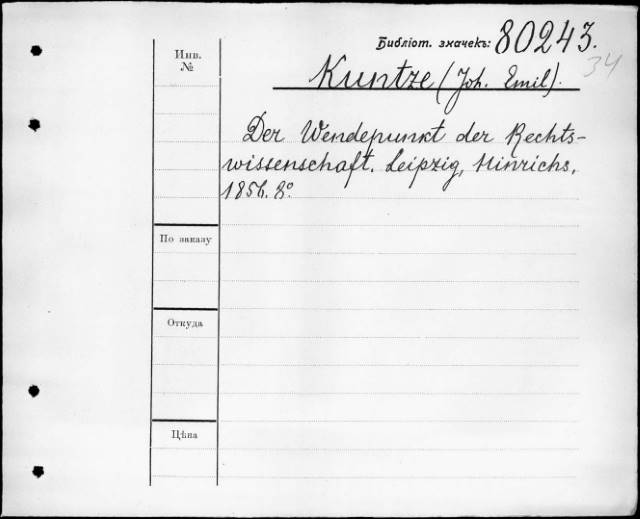 Библіот. значекъ: 80243.
34
Инв.
№
Kuntze (Joh. Emil).
Der Wendepunkt der Rechts-
wissenschaft. Leipzig, Hinrichs,
1856. 8°.
По заказу
Откуда
Цѣна